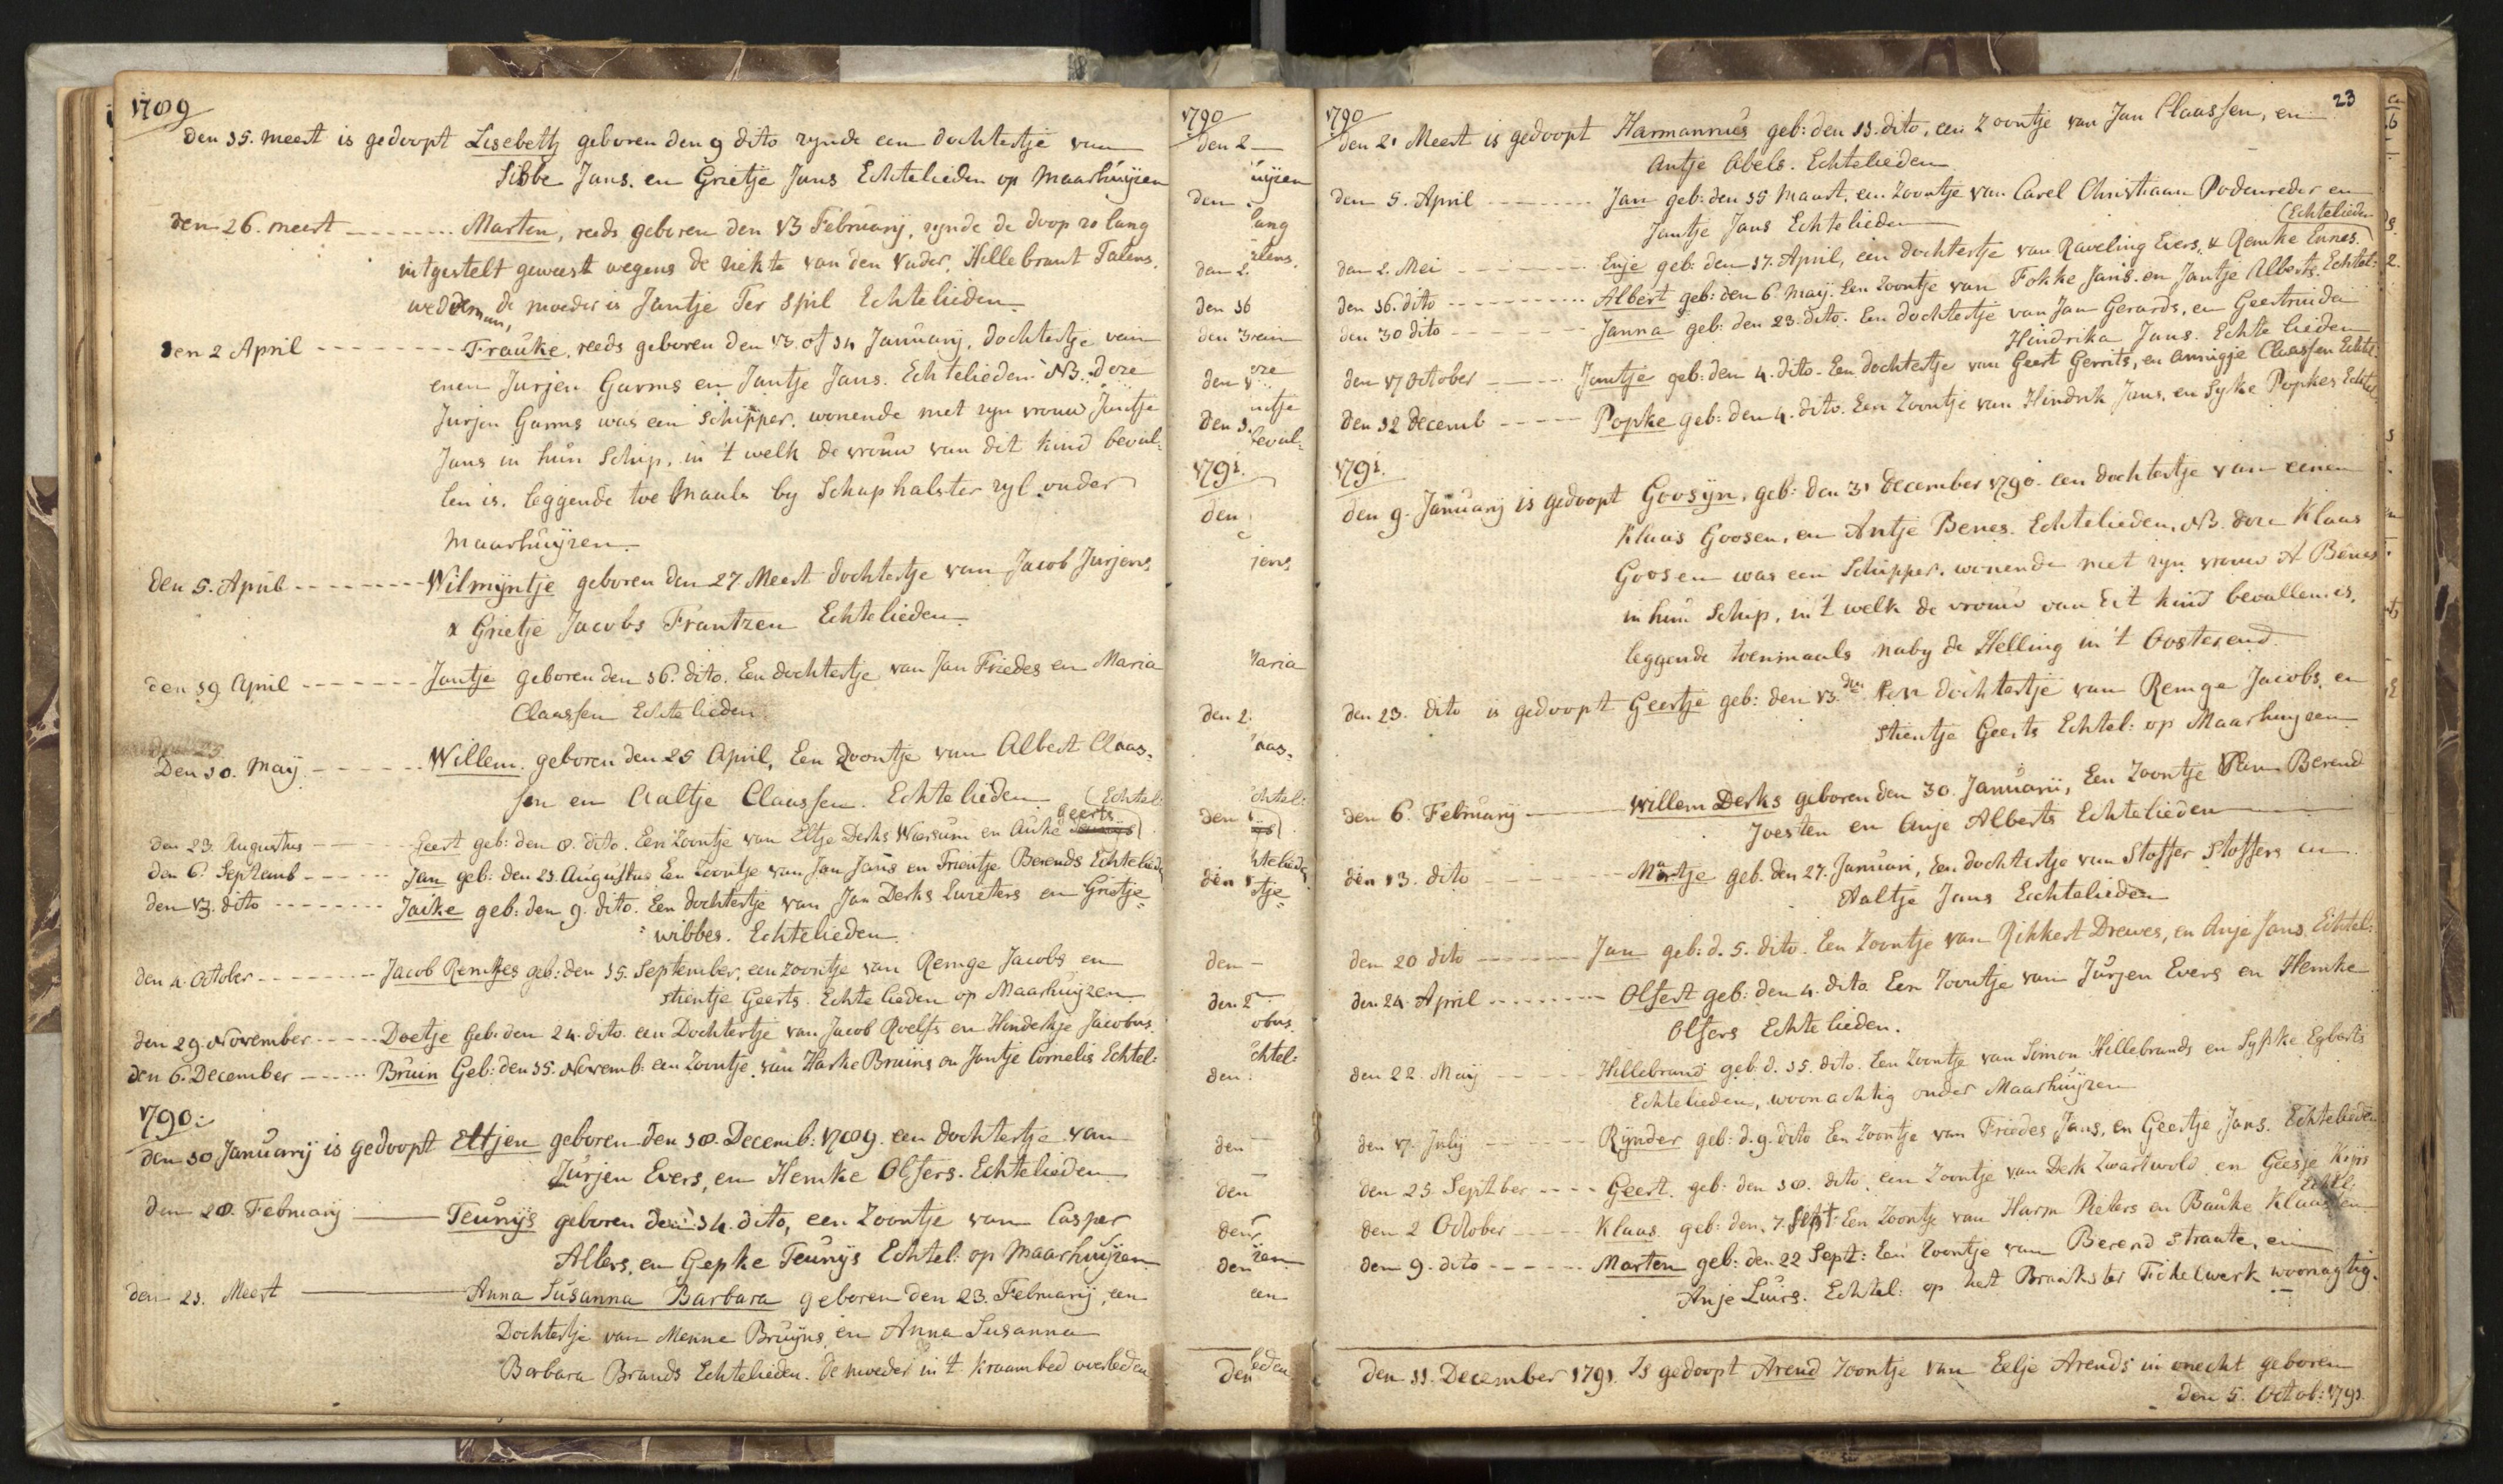 1789
den 15. meert is gedoopt Lisebeth geboren den 9 dito zynde een dochtertje van
Sibbe Jans. en Grietje Jans Echtelieden op Maarhuijzen
den 26. meert Marten, reeds geboren den 13 February, zynde de doop zo lang
uitgestelt geweest wegens de ziekte van den Vader, Hillebrant Talens.
wedderman, de moeder is Jantje Ter Spil Echtelieden
den 2 April Frauke, reeds geboren den 13 of 14 January, dochtertje van
enen Jurjen Garms en Jantje Jans. Echtelieden. NB. Deze
Jurjen Garms was een Schipper. wonende met zyn vrouw Jantje
Jans in hun Schip, in 't welk de vrouw van dit kind beval-
len is. leggende toe maals by Schaphalster zyl onder
Maarhuijzen.
den 5. April Wilmijntje geboren den 27. Meert dochtertje van Jacob Jurjens
& Grietje Jacobs Frantzen Echtelieden
den 19 April Jantje geboren den 16. dito. Een dochtertje van Jan Friedes en Maria
Claassen Echtelieden
Den 10. May Willem. geboren den 25 April, Een Zoontje van Albert Claas-
sen en Aaltje Claassen. Echtelieden (Echtel:
den 23. Augustus Geert geb: den 8. dito. Een Zoontje van Eltje Derks Wiersum en Auke Geerts
den 6. Septemb Jan geb: den 23. Augustus Een Zoontje van Jan Jans en Trientje Berends Echtelied
den 13. dito Jaike geb: den 9. dito. Een dochtertje van Jan Derks Lureters en Grietje
wibbes. Echtelieden.
den 4. October Jacob Remkes geb: den 15. September, een zoontje van Remge Jacobs en
Stientje Geerts. Echtelieden op Maarhuijzen
den 29. November Doetje Geb. den 24. dito. een Dochtertje van Jacob Roelfs en Hinderkje Jacobus.
den 6. December Bruin Geb: den 15. Novemb: een Zoontje van Harke Bruins en Jantje Cornelis Echtel:
1790:
den 10 January is gedoopt Eltjen geboren den 18. Decemb: 1789. een dochtertje van
Jurjen Evers, en Hemke Olfers. Echtelieden
den 28. February Teunijs geboren den 14. dito, een Zoontje van Casper
Albers, en Gepke Teunijs Echtel: op Maarhuijzen
den 21. Meert Anna Susanna Barbara geboren den 23. February, een
Dochtertje van Menne Bruijns en Anna Susanna
Barbara Brands Echtelieden. De moeder in 't kraambed overleden
1790
den 2
uijzen
den
lang
alens.
den 2.
den 16
den 3
den 1
den 1
beval-
1791.
den
jens
Maria
den 2.
aas-
chtel:
den
den 1
tje
den
den 2
obus.
chtel:
den
den
den
den
den
zen
een
den
23
1790
den 21 Meert is gedoopt Harmannus geb: den 13. dito, een Zoontje van Jan Claassen, en
Antje Abels. Echtelieden
den 5. April Jan geb: den 15 Maart. een Zoontje van Carel Christiaan Podenreder en
Jantje Jans Echtelieden (Echtelieden
den 2. Mei Enje geb: den 17. April, een dochtertje van Raveling Evers, & Remke Ennes.
den 16. dito Albert geb: den 6. May. Een Zoontje van Fokke Jans. en Jantje Alberts. Echtel:
den 30 dito Janna geb: den 23. dito. Een dochtertje van Jan Gerards, en Geertruida
Hindrika Jans. Echtelieden
den 17 October Jantje geb: den 4. dito. Een dochtertje van Geert Gerrits, en Annigje Claassen Echtel:
den 12 Decemb Popke geb: den 4. dito. Een Zoontje van Hindrik Jans. en Syke Popkes Echtel
1791.
den 9. January is gedoopt Goosijn, geb: den 31 December 1790. een dochtertje van eenen
Klaas Goosen, en Antje Benes. Echtelieden, NB. Deze Klaas
Goosen was een Schipper. wonende met zyn vrouw A Benes
in hun Schip, in 't welk de vrouw van dit kind bevallen is,
leggende toenmaals naby de Helling in 't Oosterend
den 23. dito is gedoopt Geertje geb: den 13. den Een dochtertje van Remge Jacobs, en
Stientje Geerts Echtel: op Maarhuyzen
den 6. February Willem Derks geboren den 30. Januarii, Een Zoontje Van Berend
Joesten en Anje Alberts Echtelieden
den 13. dito Martje geb. den 27. Januari, Een dochtertje van Stoffer Stoffers en
Aaltje Jans Echtelieden
den 20 dito Jan geb: d. 5. dito. Een Zoontje van Rikkert Drewes, en Anje Jans. Echtel:
den 24. April Olfert geb: den 4. dito Een Zoontje van Jurjen Evers en Hemke
Olfers Echtelieden.
den 22. May Hillebrand geb. d. 15. dito. Een Zoontje van Simon Hillebrands en Sijpke Egberts
Echtelieden, woonachtig onder Maarhuijzen
den 17. July Rynder geb: d. 9. dito Een Zoontje van Friedes Jans, en Geertje Jans. Echtelieden
den 25 Septber Geert. geb: den 18. dito, een Zoontje van Derk Zwartwold en Geesje Kijps
Echtl:
den 2 October Klaas geb: den 7. Sept: Een Zoontje van Harm Pieters en Bauke Klaassen
den 9. dito Marten geb: den 22 Sept: Een Zoontje van Berend Straate, en
Anje Luirs. Echtel: op het Braakster Tichelwerk woonagtig.
den 11. December 1791. Is gedoopt Arend Zoontje van Eelje Arends in onecht geboren
den 5. Octob: 1791.